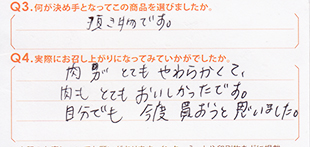 Q3.何が決め手となってこの商品を選びましたか。
頂き物です。
Q4.実際にお召し上がりになってみていかがでしたか。
肉質がとてもやわらかくて、
肉もとてもおいしかったです。
自分でも今度買おうと思いました。